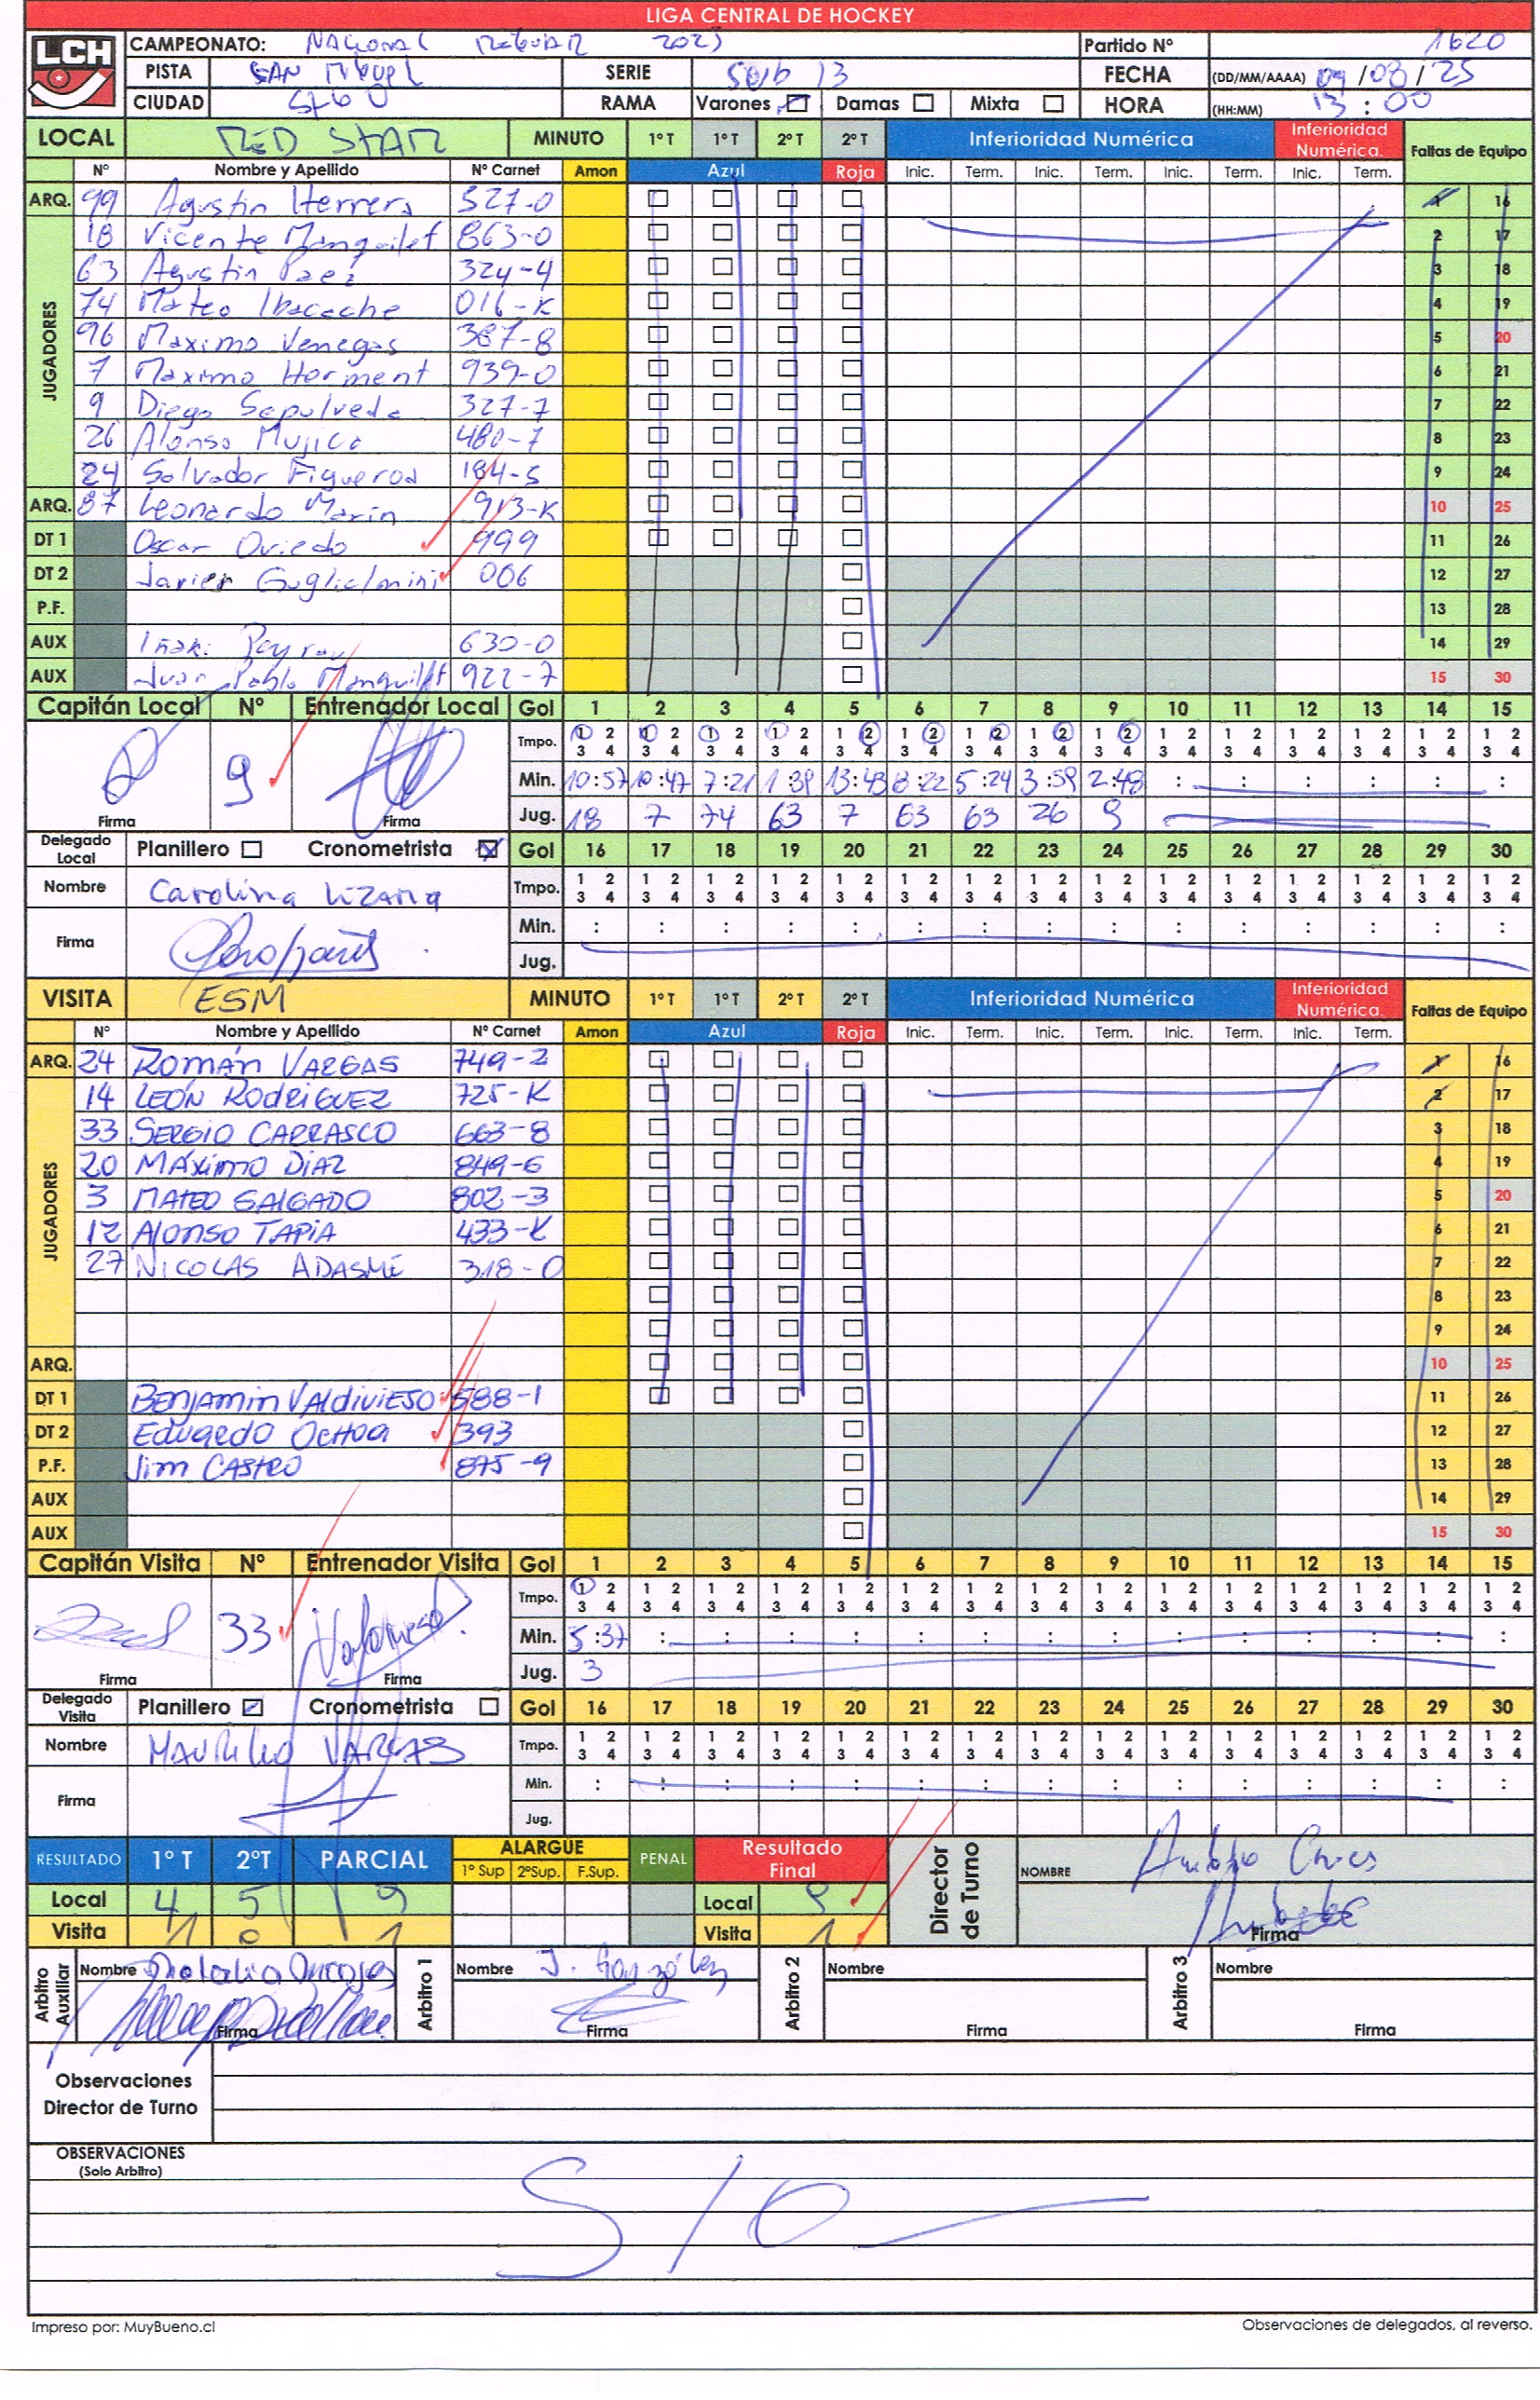 LIGA CENTRAL DE HOCKEY
LCH
CAMPEONATO: Nacional 2025 Partido Nº 1620
PISTA San Miguel SERIE Sub 13 FECHA (DD/MM/AAAA) 09/08/25
CIUDAD Stgo RAMA Varones Damas Mixta HORA (HH:MM) 13:00
LOCAL RED STAR MINUTO 1º T 1º T 2º T 2º T Inferioridad Numérica Inferioridad Numérica. Faltas de Equipo
Nº Nombre y Apellido Nº Carnet Amon Azul Roja Inic. Term. Inic. Term. Inic. Term. Inic. Term.
ARQ. 99 Agustin Herrera 527-0 1 16
JUGADORES
18 Vicente Manquilef 863-0 2 17
63 Agustin Paez 324-4 3 18
74 Mateo Ibacache 016-K 4 19
96 Maximo Venegas 387-8 5 20
7 Maximo Horment 939-0 6 21
9 Diego Sepulveda 327-7 7 22
26 Alonso Mujica 480-7 8 23
24 Salvador Figueroa 184-5 9 24
ARQ. 87 Leonardo Marin 913-K 10 25
DT 1 Oscar Oviedo 999 11 26
DT 2 Javier Guglielmini 006 12 27
P.F. 13 28
AUX Iñaki 630-0 14 29
AUX Juan Pablo Manquilef 922-7 15 30
Capitán Local Nº Entrenador Local Gol 1 2 3 4 5 6 7 8 9 10 11 12 13 14 15
Tmpo. 1 2 3 4 1 2 3 4 1 2 3 4 1 2 3 4 1 2 3 4 1 2 3 4 1 2 3 4 1 2 3 4 1 2 3 4 1 2 3 4 1 2 3 4 1 2 3 4 1 2 3 4 1 2 3 4 1 2 3 4
9 Min. 10:57 10:47 7:21 1:39 13:43 8:22 5:24 3:59 2:48 : : : : : :
Firma Firma Jug. 18 7 74 63 7 63 63 26 9
Delegado Local Planillero Cronometrista Gol 16 17 18 19 20 21 22 23 24 25 26 27 28 29 30
Nombre Carolina Lizana Tmpo. 1 2 3 4 1 2 3 4 1 2 3 4 1 2 3 4 1 2 3 4 1 2 3 4 1 2 3 4 1 2 3 4 1 2 3 4 1 2 3 4 1 2 3 4 1 2 3 4 1 2 3 4 1 2 3 4 1 2 3 4
Firma Min. : : : : : : : : : : : : : : :
Jug.
VISITA ESM MINUTO 1º T 1º T 2º T 2º T Inferioridad Numérica Inferioridad Numérica. Faltas de Equipo
Nº Nombre y Apellido Nº Carnet Amon Azul Roja Inic. Term. Inic. Term. Inic. Term. Inic. Term.
ARQ. 24 ROMÁN VARGAS 749-2 1 16
JUGADORES
14 LEÓN RODRIGUEZ 725-K 2 17
33 SERGIO CARRASCO 663-8 3 18
20 MÁXIMO DIAZ 849-6 4 19
3 MATEO SALGADO 802-3 5 20
12 Alonso TAPIA 433-K 6 21
27 NICOLAS ADASME 318-0 7 22
8 23
9 24
ARQ. 10 25
DT 1 BENJAMIN VALDIVIESO 588-1 11 26
DT 2 Eduardo OCHOA 393 12 27
P.F. Jim CASTRO 875-9 13 28
AUX 14 29
AUX 15 30
Capitán Visita Nº Entrenador Visita Gol 1 2 3 4 5 6 7 8 9 10 11 12 13 14 15
Tmpo. 1 2 3 4 1 2 3 4 1 2 3 4 1 2 3 4 1 2 3 4 1 2 3 4 1 2 3 4 1 2 3 4 1 2 3 4 1 2 3 4 1 2 3 4 1 2 3 4 1 2 3 4 1 2 3 4 1 2 3 4
33 Min. 5:37 : : : : : : : : : : : : : :
Firma Firma Jug. 3
Delegado Visita Planillero Cronometrista Gol 16 17 18 19 20 21 22 23 24 25 26 27 28 29 30
Nombre VARGAS Tmpo. 1 2 3 4 1 2 3 4 1 2 3 4 1 2 3 4 1 2 3 4 1 2 3 4 1 2 3 4 1 2 3 4 1 2 3 4 1 2 3 4 1 2 3 4 1 2 3 4 1 2 3 4 1 2 3 4 1 2 3 4
Firma Min. : : : : : : : : : : : : : : :
Jug.
RESULTADO 1º T 2ºT PARCIAL ALARGUE 1º Sup 2ºSup. F.Sup. PENAL Resultado Final Director de Turno NOMBRE
Local 4 5 9 Local 9
Visita 1 0 1 Visita 1 Firma
Arbitro Auxiliar Nombre Arbitro 1 Nombre J. González Arbitro 2 Nombre Arbitro 3 Nombre
Firma Firma Firma Firma
Observaciones
Director de Turno
OBSERVACIONES
(Solo Arbitro)
S/O
Impreso por: MuyBueno.cl Observaciones de delegados, al reverso.